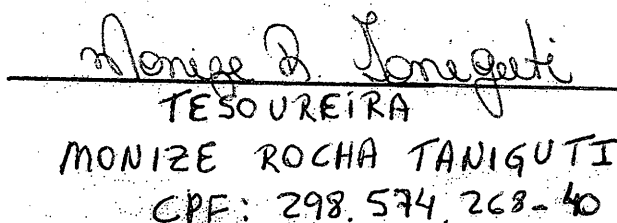 Monize R. Taniguti
TESOUREIRA
MONIZE ROCHA TANIGUTI
CPF: 298.574.268-40